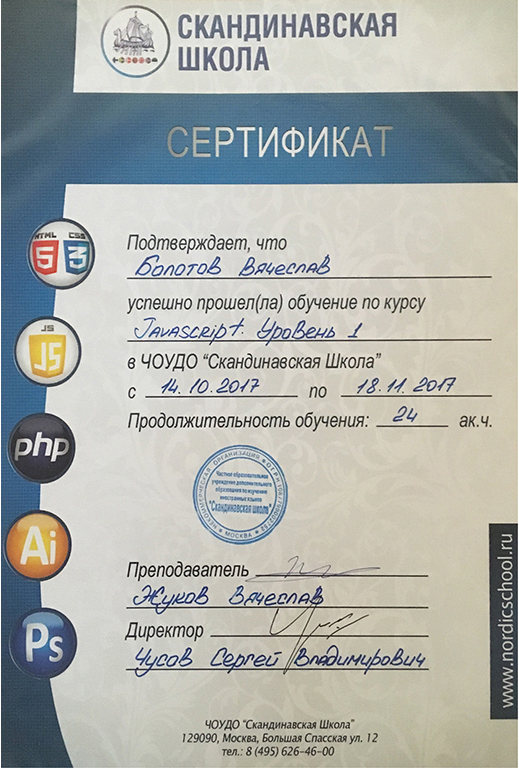 СКАНДИНАВСКАЯ
ШКОЛА
СЕРТИФИКАТ
HTML CSS
5 3
Подтверждает, что
Болотов Вячеслав
успешно прошел(ла) обучение по курсу
JS
JS
Javascript. Уровень 1
в ЧОУДО "Скандинавская Школа"
с 14.10.2017 по 18.11.2017
Продолжительность обучения: 24 ак.ч.
php
НЕКОММЕРЧЕСКАЯ ОРГАНИЗАЦИЯ
Частное образовательное
учреждение дополнительного
образования по изучению
иностранных языков
"Скандинавская школа"
МОСКВА
Ai
Преподаватель
Жуков Вячеслав
Директор
Чусов Сергей Владимирович
Ps
www.nordicschool.ru
ЧОУДО "Скандинавская Школа"
129090, Москва, Большая Спасская ул. 12
тел.: 8 (495) 626-46-00